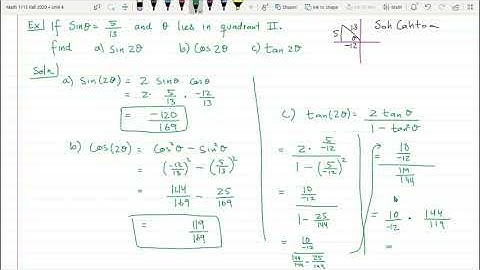 Math 1113 Fall 2020 • Unit 4
Ex) If Sinθ = 5/13 and θ lies in quadrant II.
find a) Sin 2θ b) Cos 2θ c) tan 2θ
Soh Cah toa
5 13 θ -12
Soln
a) Sin(2θ) = 2 Sinθ Cosθ
= 2 · 5/13 · -12/13
= -120/169
b) Cos(2θ) = Cos²θ - Sin²θ
= (-12/13)² - (5/13)²
= 144/169 - 25/169
= 119/169
c) tan(2θ) = 2 tanθ / 1 - tan²θ
= 2 · 5/-12 / 1 - (5/-12)²
= 10/-12 / 1 - 25/144
= 10/-12 / 144/144 - 25/144
= 10/-12 / 119/144
= 10/-12 · 144/119
=